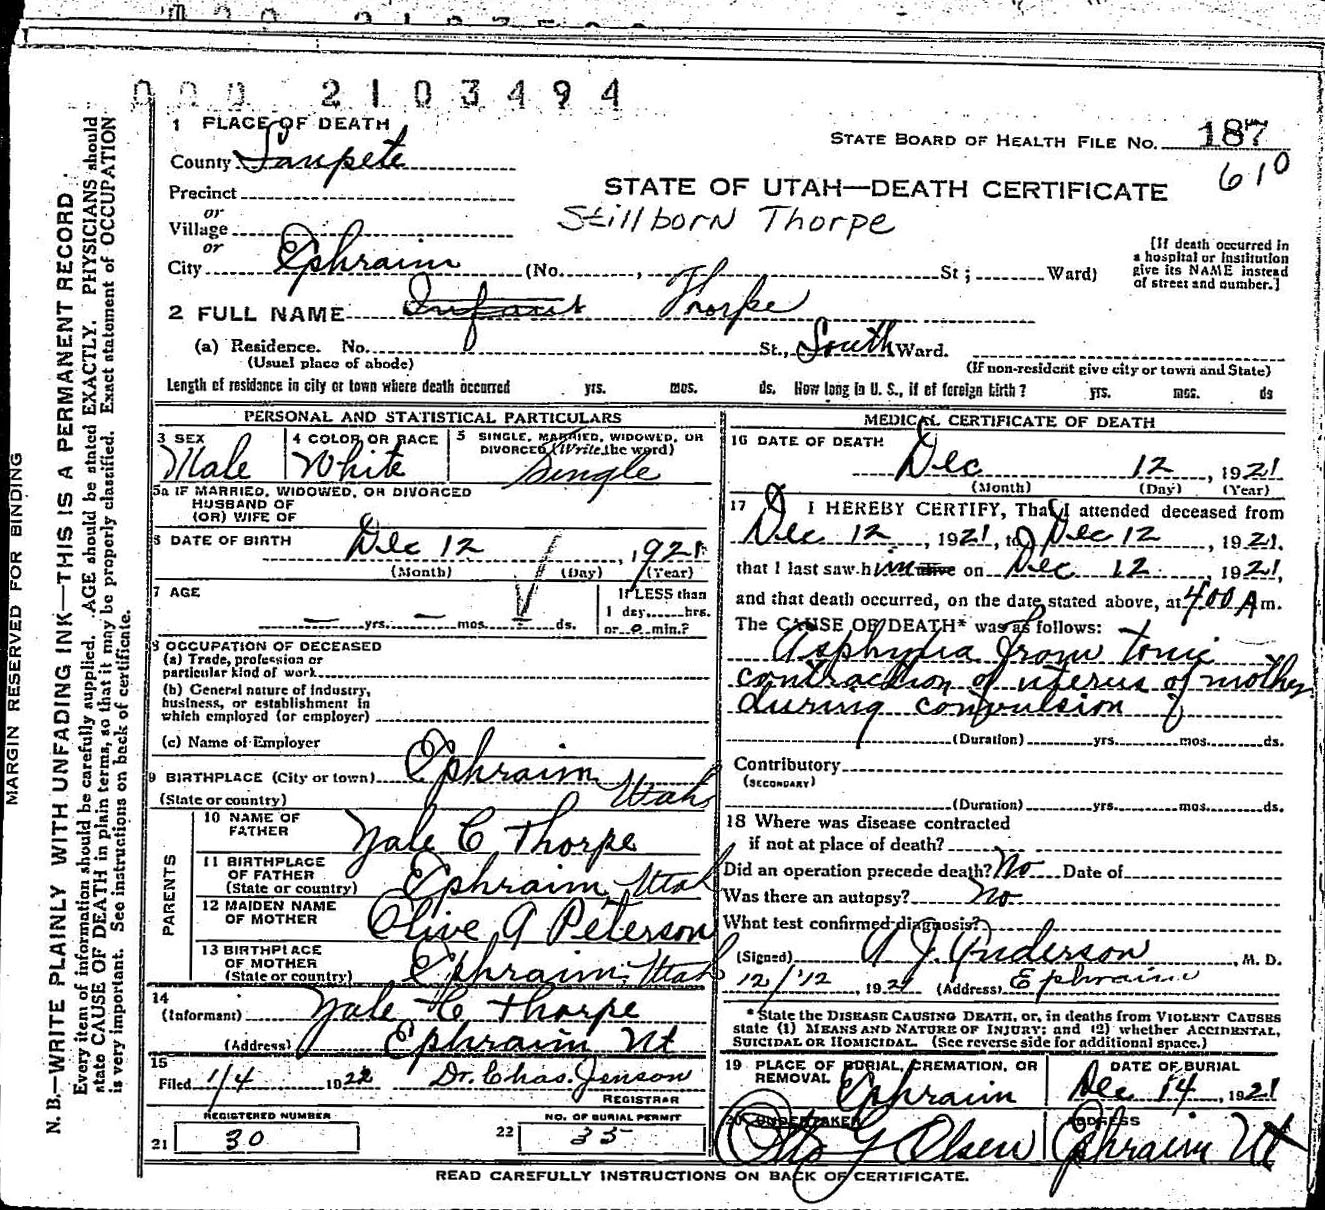 000 2103494
1 PLACE OF DEATH
STATE BOARD OF HEALTH FILE No. 187
610
County Sanpete
STATE OF UTAH—DEATH CERTIFICATE
Precinct
or
Stillborn Thorpe
Village
or
City Ephraim (No. , St; Ward)
[If death occurred in a hospital or institution give its NAME instead of street and number.]
2 FULL NAME Infant Thorpe
(a) Residence. No. St., South Ward.
(Usual place of abode) (If non-resident give city or town and State)
Length of residence in city or town where death occurred yrs. mos. ds. How long in U. S., if of foreign birth? yrs. mos. ds
PERSONAL AND STATISTICAL PARTICULARS
3 SEX Male
4 COLOR OR RACE White
5 SINGLE, MARRIED, WIDOWED, OR DIVORCED (Write the word) Single
5a IF MARRIED, WIDOWED, OR DIVORCED
HUSBAND OF
(OR) WIFE OF
6 DATE OF BIRTH Dec 12, 1921
(Month) (Day) (Year)
7 AGE — yrs. — mos. ds.
If LESS than
1 day, hrs.
or 0 min.?
8 OCCUPATION OF DECEASED
(a) Trade, profession or
particular kind of work
(b) General nature of industry,
business, or establishment in
which employed (or employer)
(c) Name of Employer
9 BIRTHPLACE (City or town) Ephraim
(State or country) Utah
PARENTS
10 NAME OF FATHER Yale C Thorpe
11 BIRTHPLACE OF FATHER (State or country) Ephraim, Utah
12 MAIDEN NAME OF MOTHER Olive A Peterson
13 BIRTHPLACE OF MOTHER (State or country) Ephraim, Utah
14
(Informant) Yale C Thorpe
(Address) Ephraim Ut
15
Filed 1/4 1922 Dr. Chas. Jenson
REGISTRAR
REGISTERED NUMBER
21 30
NO. OF BURIAL PERMIT
22 35
MEDICAL CERTIFICATE OF DEATH
16 DATE OF DEATH
Dec 12, 1921
(Month) (Day) (Year)
17 I HEREBY CERTIFY, That I attended deceased from
Dec 12, 1921, to Dec 12, 1921.
that I last saw him alive on Dec 12, 1921,
and that death occurred, on the date stated above, at 400 A m.
The CAUSE OF DEATH* was as follows:
Asphyxia from tonic
contraction of uterus of mother
during convulsion
(Duration) yrs. mos. ds.
Contributory
(SECONDARY)
(Duration) yrs. mos. ds.
18 Where was disease contracted
if not at place of death?
Did an operation precede death? No Date of
Was there an autopsy? No
What test confirmed diagnosis?
(Signed) A J. Anderson, M. D.
12/12, 1921 (Address) Ephraim
* State the DISEASE CAUSING DEATH, or, in deaths from VIOLENT CAUSES
state (1) MEANS AND NATURE OF INJURY; and (2) whether ACCIDENTAL,
SUICIDAL OR HOMICIDAL. (See reverse side for additional space.)
19 PLACE OF BURIAL, CREMATION, OR REMOVAL Ephraim
DATE OF BURIAL Dec 14, 1921
20 UNDERTAKER Otto G Olsen
ADDRESS Ephraim Ut
READ CAREFULLY INSTRUCTIONS ON BACK OF CERTIFICATE.
MARGIN RESERVED FOR BINDING
N. B.—WRITE PLAINLY WITH UNFADING INK—THIS IS A PERMANENT RECORD.
Every item of information should be carefully supplied. AGE should be stated EXACTLY. PHYSICIANS should
state CAUSE OF DEATH in plain terms, so that it may be properly classified. Exact statement of OCCUPATION
is very important. See instructions on back of certificate.